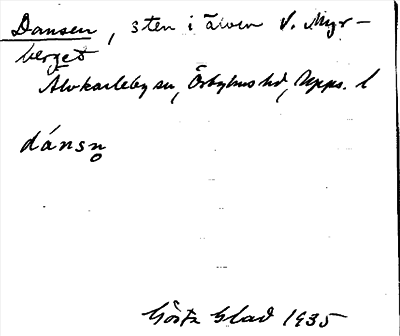 Dansen, sten i älven V. Myr-
berget
Älvkarleby sn, Örbyhus hd, Upps. l
dánsn̥
Gösta Glad 1935